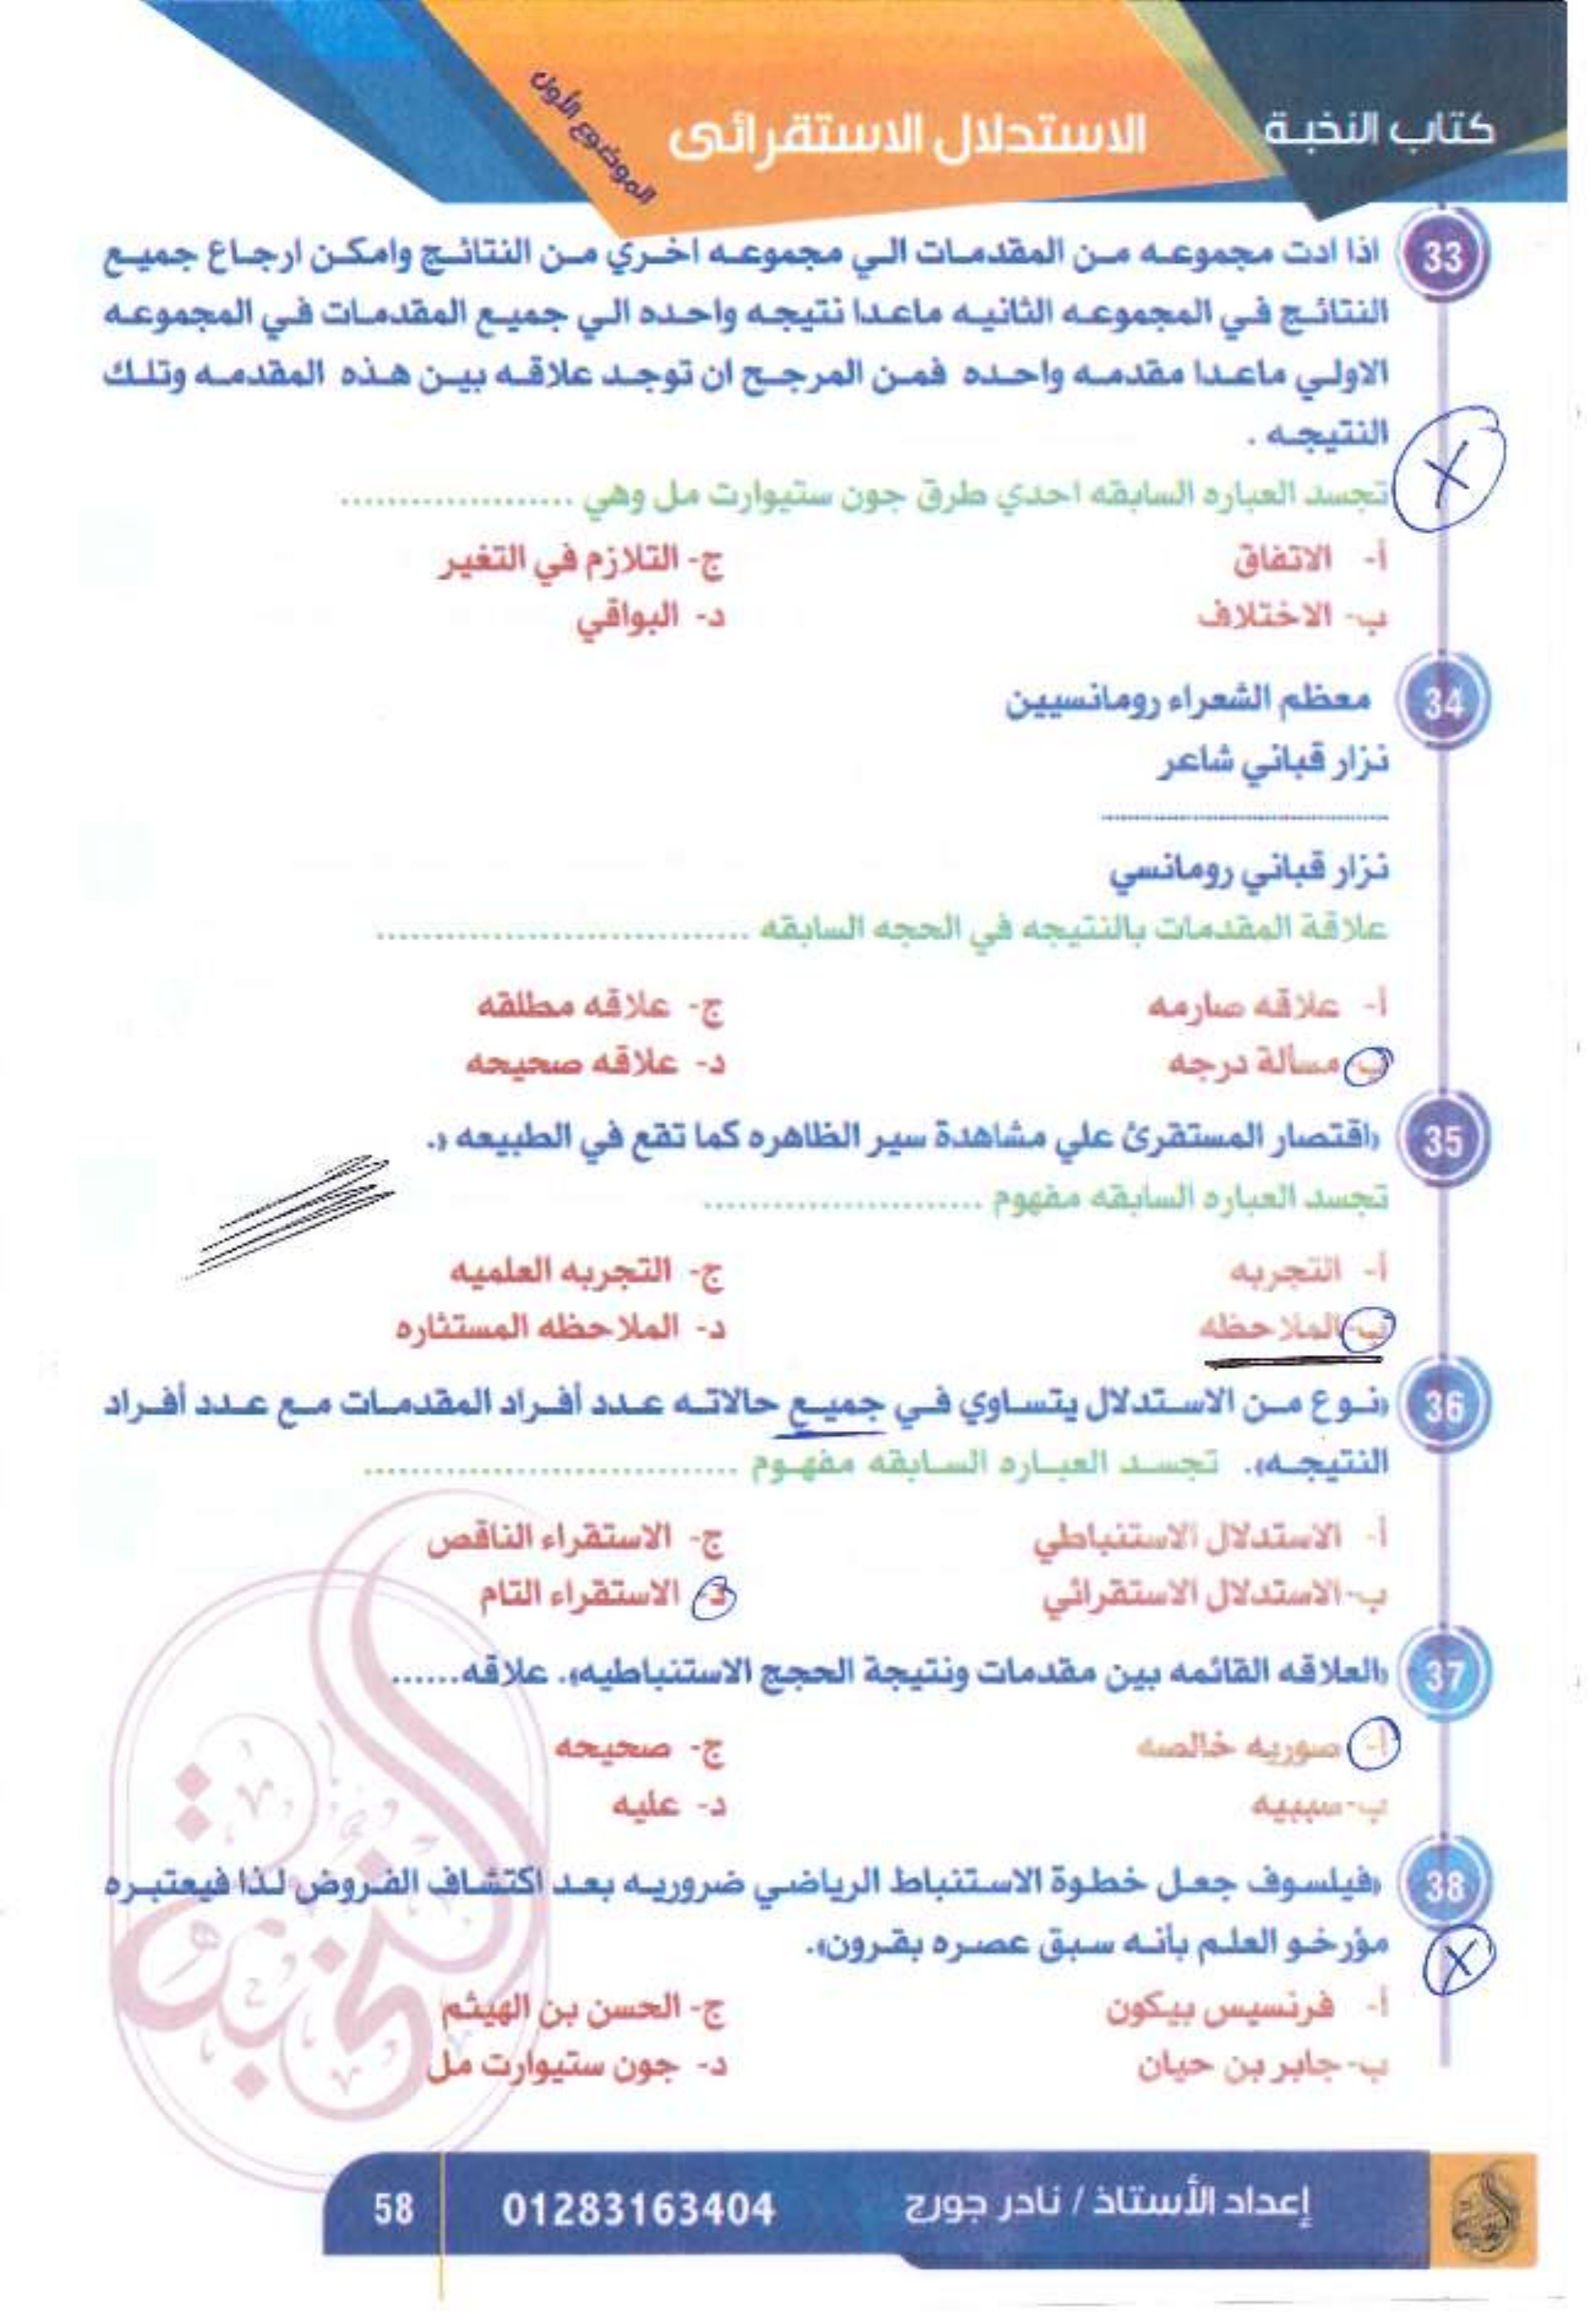 كتاب النخبة
الاستدلال الاستقرائى
الموضوع الأول
33 اذا ادت مجموعه من المقدمات الي مجموعه اخري من النتائج وامكن ارجاع جميع
النتائج في المجموعه الثانيه ماعدا نتيجه واحده الي جميع المقدمات في المجموعه
الاولي ماعدا مقدمه واحده فمن المرجح ان توجد علاقه بين هذه المقدمه وتلك
النتيجه .
تجسد العباره السابقه احدي طرق جون ستيوارت مل وهي ....................
أ- الاتفاق ج- التلازم في التغير
ب- الاختلاف د- البواقي
34 معظم الشعراء رومانسيين
نزار قباني شاعر
........................................
نزار قباني رومانسي
علاقة المقدمات بالنتيجه في الحجه السابقه ................................
أ- علاقه صارمه ج- علاقه مطلقه
ب- مسألة درجه د- علاقه صحيحه
35 «اقتصار المستقرئ علي مشاهدة سير الظاهره كما تقع في الطبيعه «.
تجسد العباره السابقه مفهوم ........................
أ- التجربه ج- التجربه العلميه
ب- الملاحظه د- الملاحظه المستثاره
36 «نوع من الاستدلال يتساوي في جميع حالاته عدد أفراد المقدمات مع عدد أفراد
النتيجه». تجسد العباره السابقه مفهوم ................................
أ- الاستدلال الاستنباطي ج- الاستقراء الناقص
ب-الاستدلال الاستقرائي د- الاستقراء التام
37 «العلاقه القائمه بين مقدمات ونتيجة الحجج الاستنباطيه». علاقه......
أ- صوريه خالصه ج- صحيحه
ب-سببيه د- عليه
38 «فيلسوف جعل خطوة الاستنباط الرياضي ضروريه بعد اكتشاف الفروض لذا فيعتبره
مؤرخو العلم بأنه سبق عصره بقرون».
أ- فرنسيس بيكون ج- الحسن بن الهيثم
ب-جابر بن حيان د- جون ستيوارت مل
النخبة
إعداد الأستاذ / نادر جورج 01283163404 58